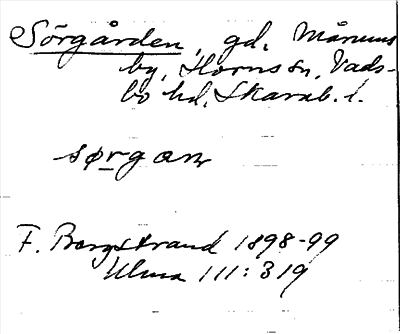 Sörgården, gd. Månums
by, Horns sn, Vads-
bo hd, Skarab. l.
sørgan
F. Bergstrand 1898-99
Ulma 111:319